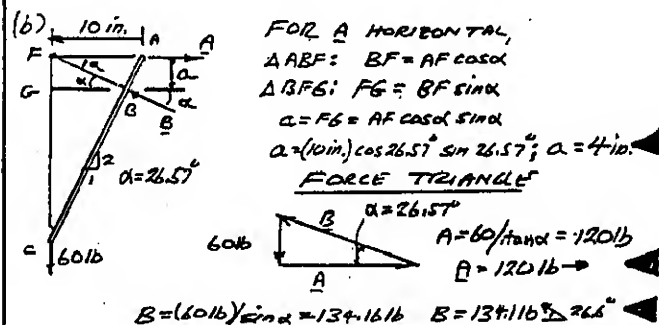 (b)
10 in.
A
A
F
α
a
α
G
α
B
B
2
1
α=26.57°
C
60lb
FOR A HORIZONTAL,
ΔABF: BF = AF cosα
ΔBFG: FG = BF sinα
a = FG = AF cosα sinα
a=(10in.) cos 26.57° sin 26.57°; a = 4 in.
FORCE TRIANGLE
α=26.57°
B
60lb
A
A=60/tanα = 120lb
A = 120 lb →
B=(60lb)/sinα = 134.16lb B=134.1lb 26.6°